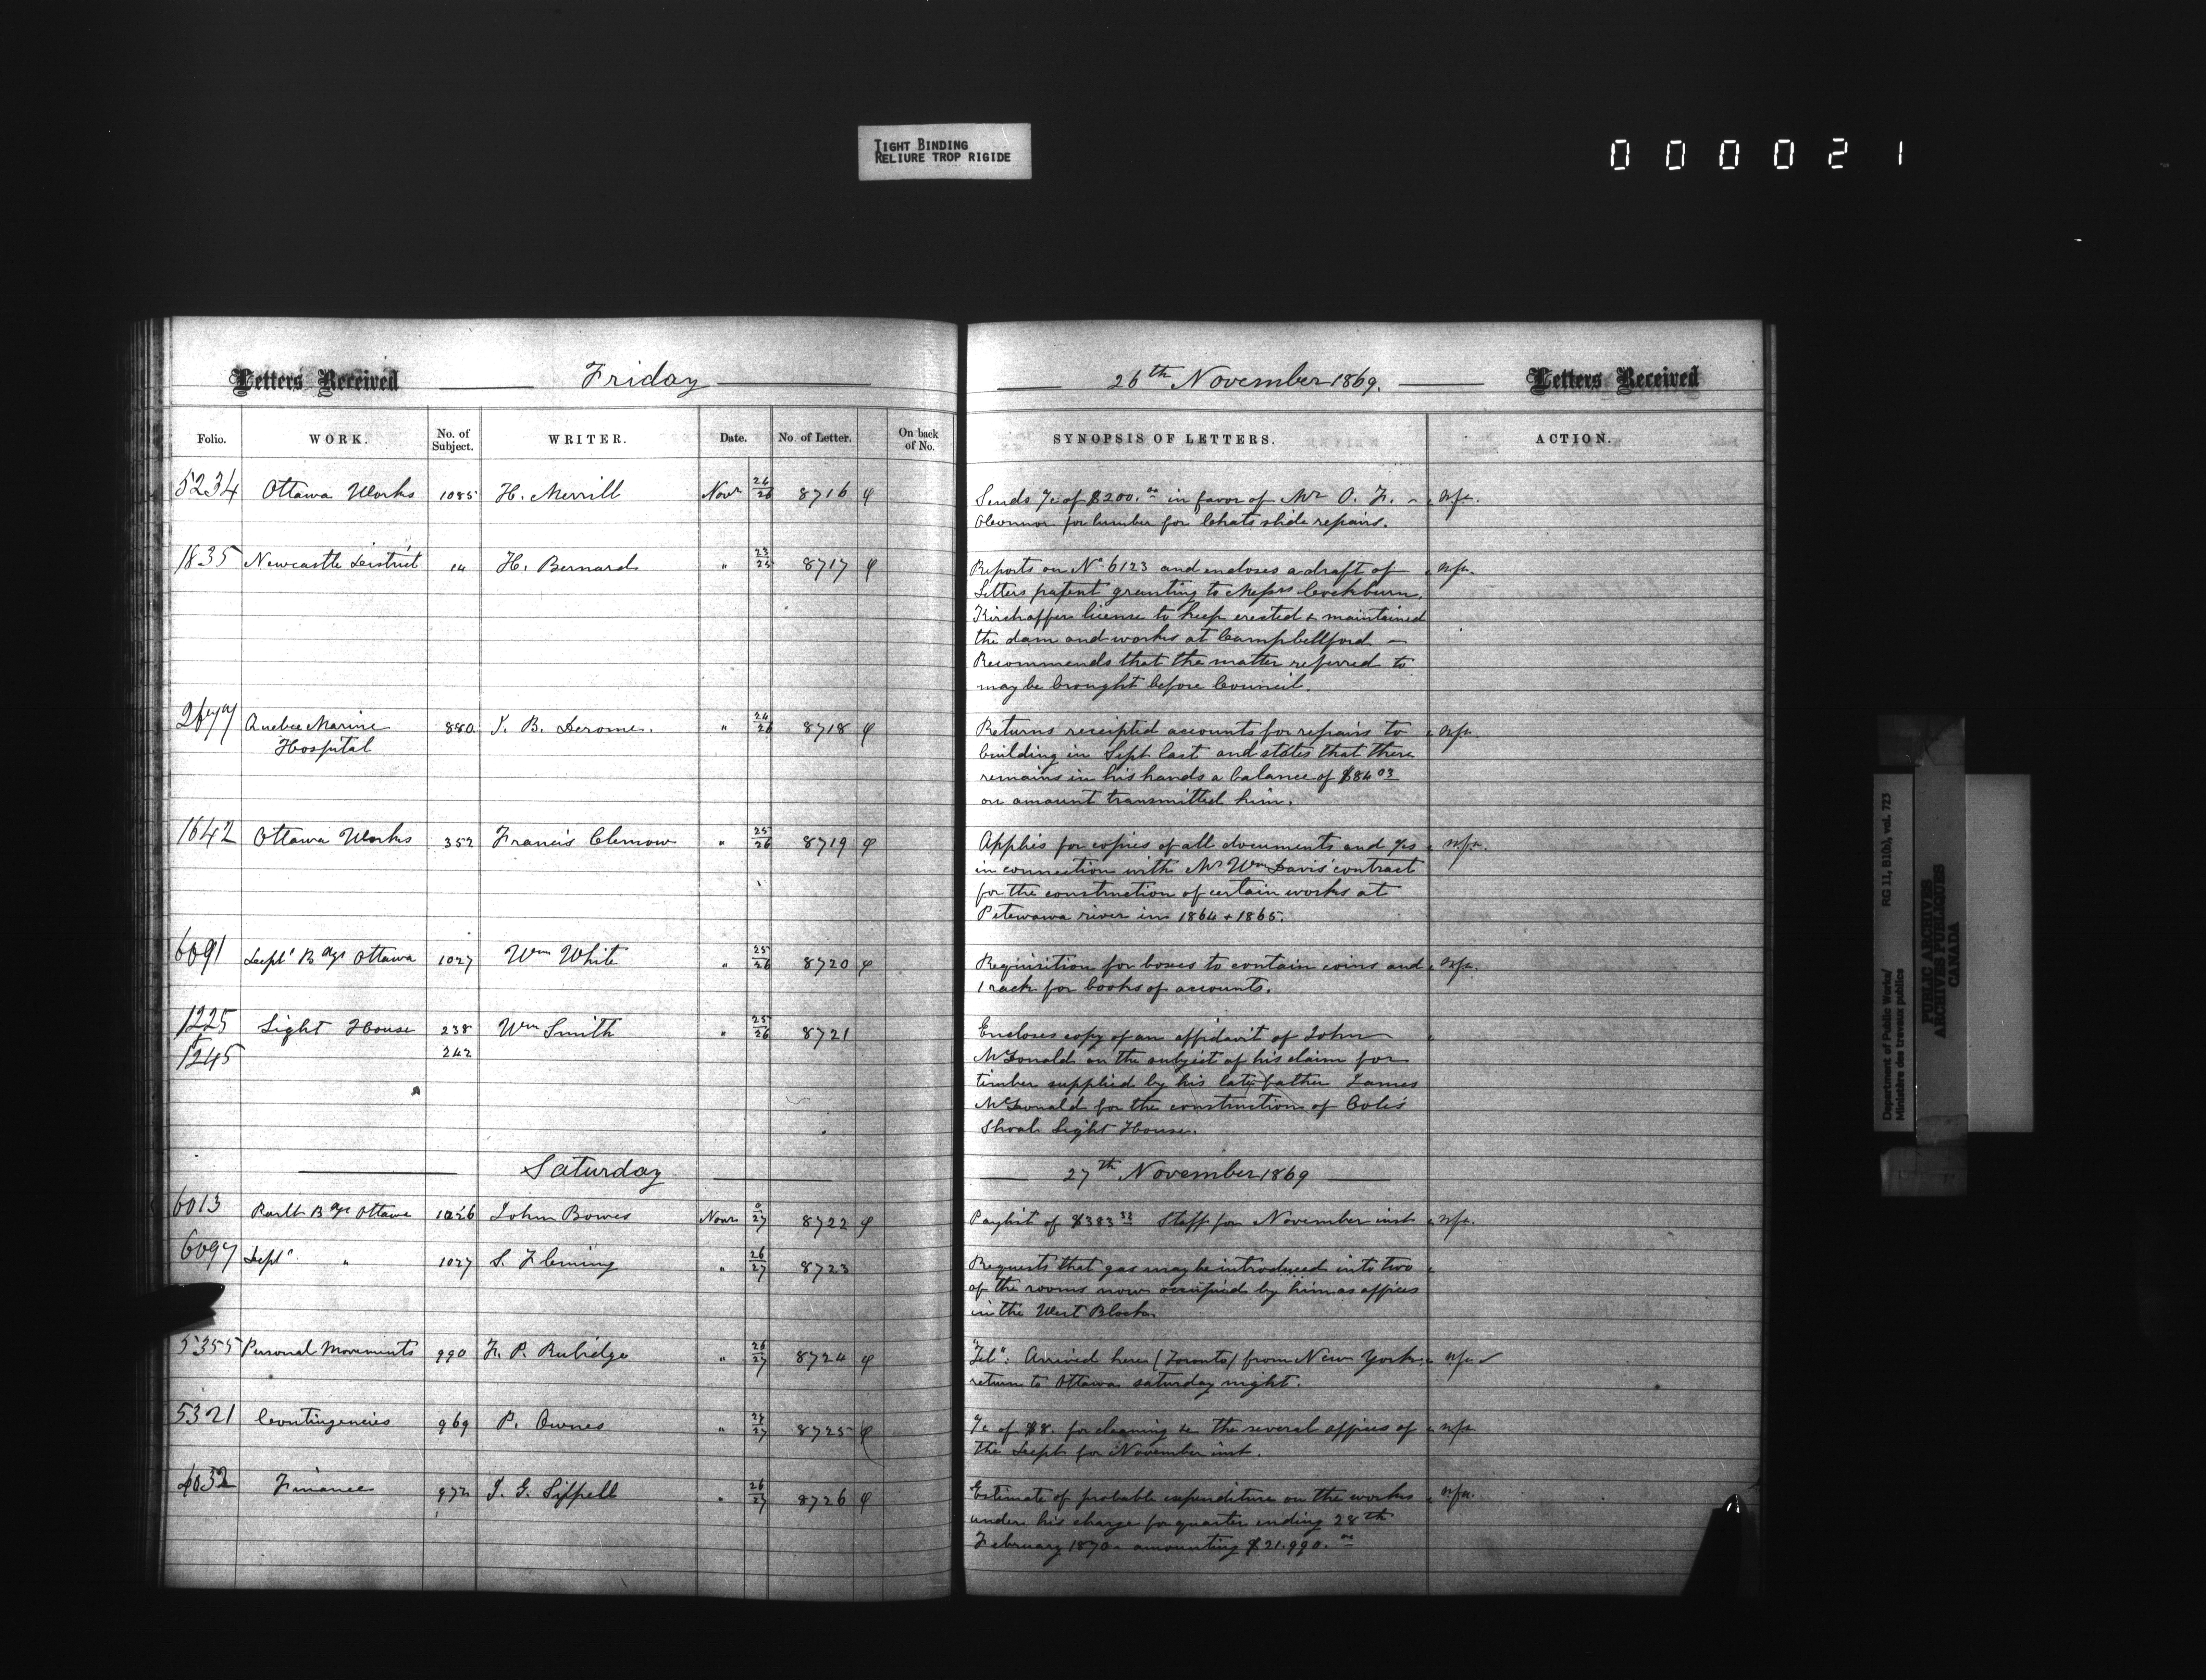 TIGHT BINDING
RELIURE TROP RIGIDE
000021
Letters Received Friday 26th November 1869. Letters Received
Folio. WORK. No. of Subject. WRITER. Date. No. of Letter. On back of No. SYNOPSIS OF LETTERS. ACTION.
5234 Ottawa Works 1085 H. Merrill Novr 26/26 8716 φ Sends a/c of $200.00 in favor of Mr O. F. n.f.a.
for lumber for Chats slide repairs.
1835 Newcastle District 14 H. Bernard " 23/25 8717 φ Reports on No 6123 and encloses a draft of n.f.a.
Letters patent granting to Messrs Cockburn
license to keep erected & maintained
the dam and works at Campbellford —
Recommends that the matter referred to
may be brought before Council.
2677 Quebec Marine 880 J. B. Derome. " 24/26 8718 φ Returns receipted accounts for repairs to n.f.a.
Hospital building in Sept last and states that there
remains in his hands a balance of $84 03
on amount transmitted him.
1642 Ottawa Works 352 Francis Clemow " 25/26 8719 φ Applies for copies of all documents and a/cs n.f.a.
in connection with Mr Wm Davis' contract
for the construction of certain works at
Petewawa river in 1864 & 1865.
6091 Dept' Bdgs Ottawa 1027 Wm White " 25/26 8720 φ Requisition for boxes to contain coins and n.f.a.
1 rack for books of accounts.
1225 Light House 238 Wm Smith " 25/26 8721 Encloses copy of an affidavit of John
1245 242 McDonald on the subject of his claim for
timber supplied by his late father James
McDonald for the construction of Coles
Shoal Light House.
Saturday 27th November 1869
6013 Parlt Bdgs Ottawa 1026 John Bowes Novr 0/27 8722 φ Paylist of $383 Staff for November inst n.f.a.
6097 Dept' " 1027 S. Fleming " 26/27 8723 Requests that gas may be introduced into two
of the rooms now occupied by him as offices
in the West Block.
5355 Personal Movements 990 F. P. Rubidge " 26/27 8724 φ "Tel": Arrived here (Toronto) from New York n.f.a.
return to Ottawa saturday night.
5321 Contingencies 969 P. Owens " 27/27 8725 φ a/c of $8. for cleaning &c the several offices of n.f.a.
the Dept for November inst.
6032 Finance 972 J. G. Sippell " 26/27 8726 φ Estimate of probable expenditure on the works n.f.a.
under his charge for quarter ending 28th
February 1870 amounting $21.990.00
Department of Public Works/
Ministère des travaux publics
RG 11, B1(b), vol. 723
PUBLIC ARCHIVES
ARCHIVES PUBLIQUES
CANADA